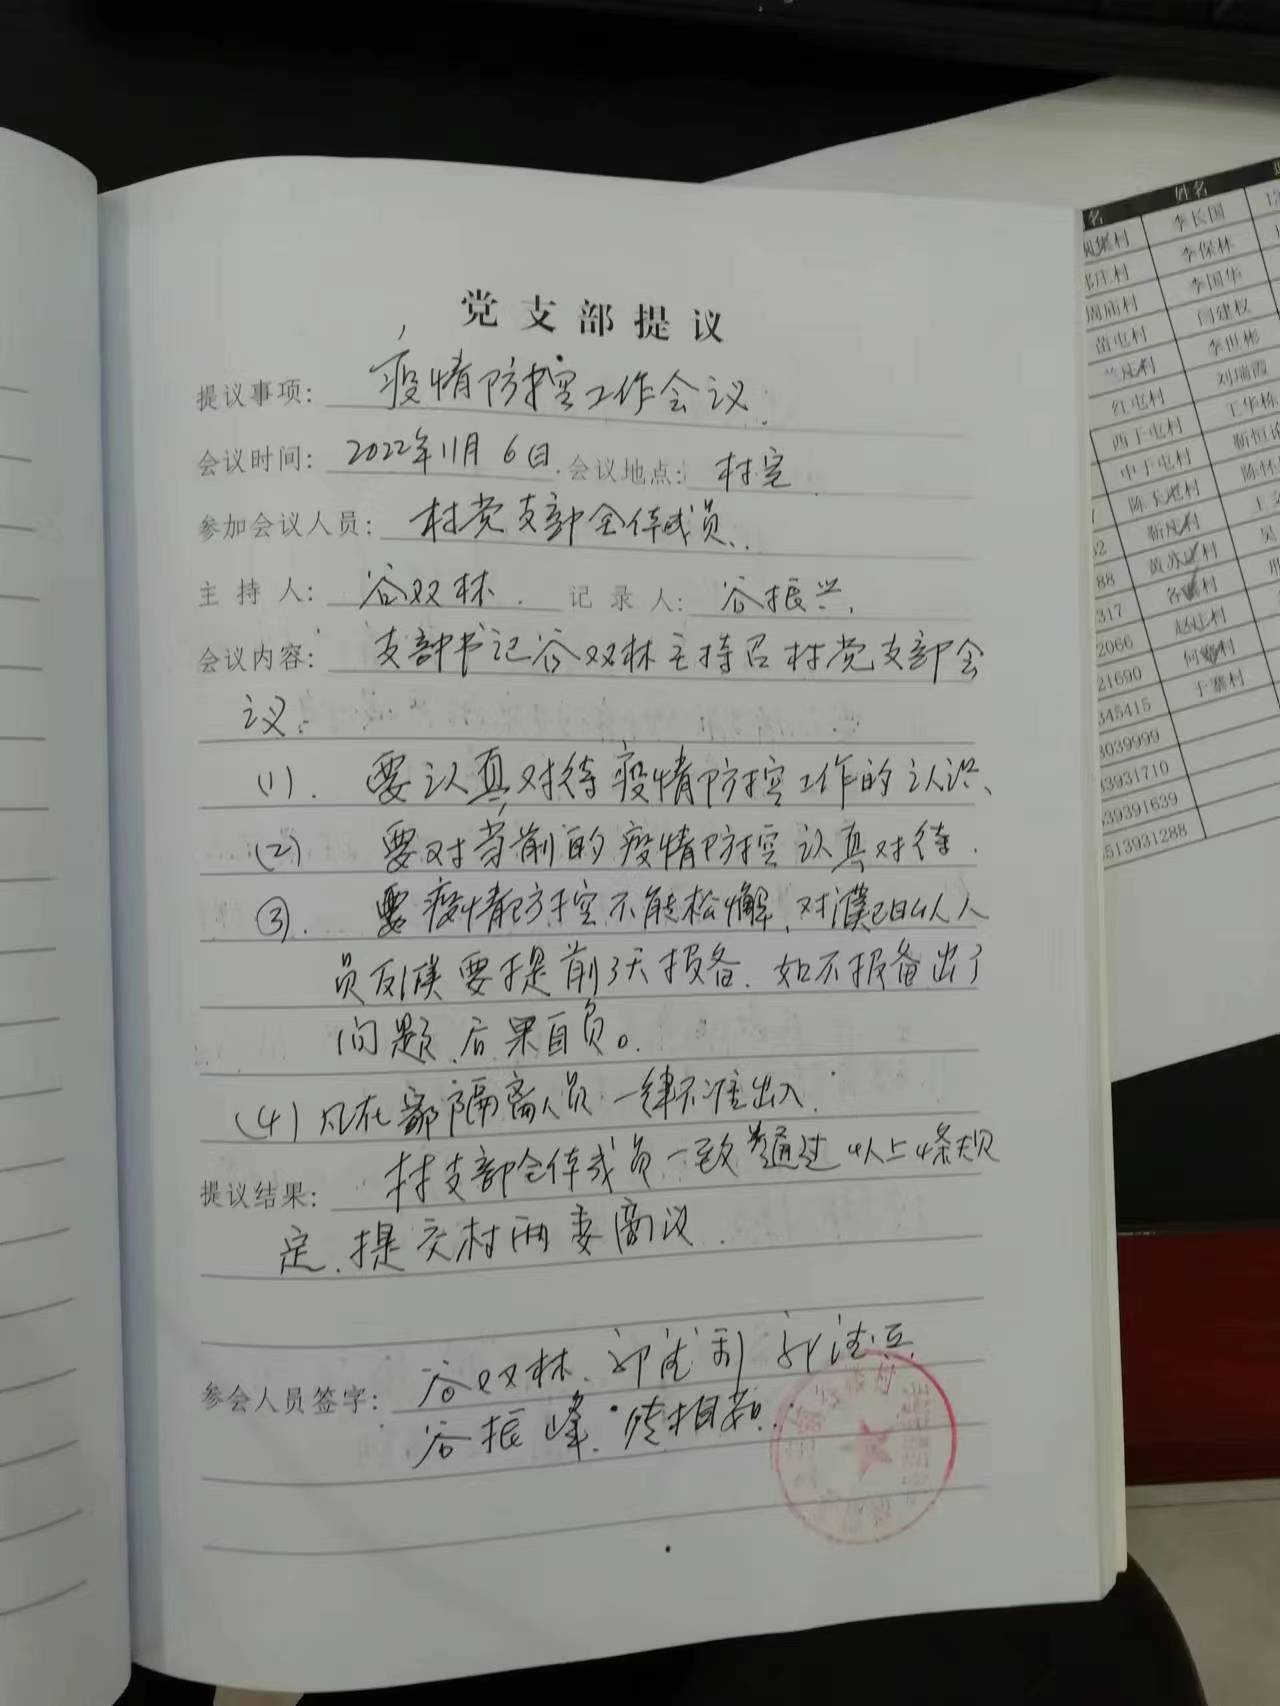 党支部提议
提议事项: 疫情防控工作会议.
会议时间: 2022年11月6日. 会议地点: 村室.
参加会议人员: 村党支部全体成员.
主持人: 谷双林. 记录人: 谷振兴.
会议内容: 支部书记谷双林主持召村党支部会
议:
(1). 要认真对待疫情防控工作的认识、
(2) 要对当前的疫情防控认真对待.
③. 要疫情防控不能松懈、对濮阳以人人
员返濮要提前3天报备. 如不报备出了
问题、后果自负。
(4) 凡在家隔离人员一律不准出入.
提议结果: 村支部全体成员一致通过以上4条规
定、提交村两委商议.
参会人员签字: 谷双林、
谷振峰.
名 姓名
村 李长国
庄村 李保林
周庙村 李国华
苗屯村 闫建权
村 李世彬
红屯村 刘瑞霞
西于屯村 王华栋
中于屯村 靳恒
陈 村
靳 村
黄苏 村
村
村
何 村
于寨村
88
317
2066
21690
345415
3039999
33931710
539391639
3513931288